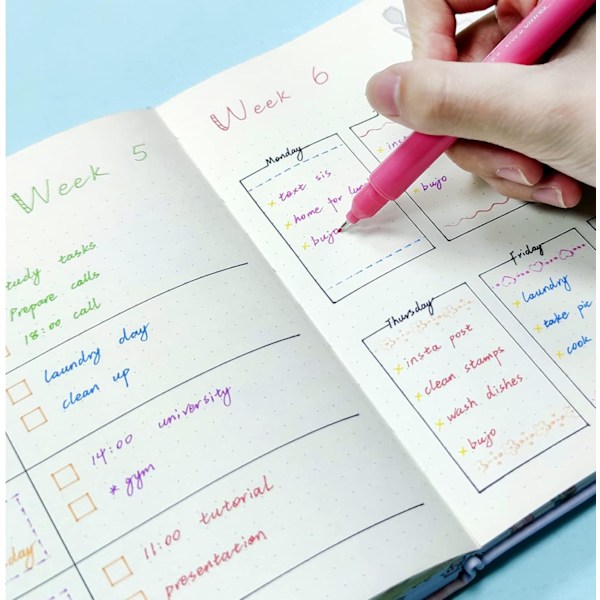 Week 5
study tasks
Prepare calls
18:00 call
laundry day
clean up
14:00 university
* gym
11:00 tutorial
presentation
day
Week 6
Monday
text sis
home for
bujo
insta
bujo
Thursday
insta post
clean stamps
wash dishes
bujo
Friday
laundry
take pic
cook